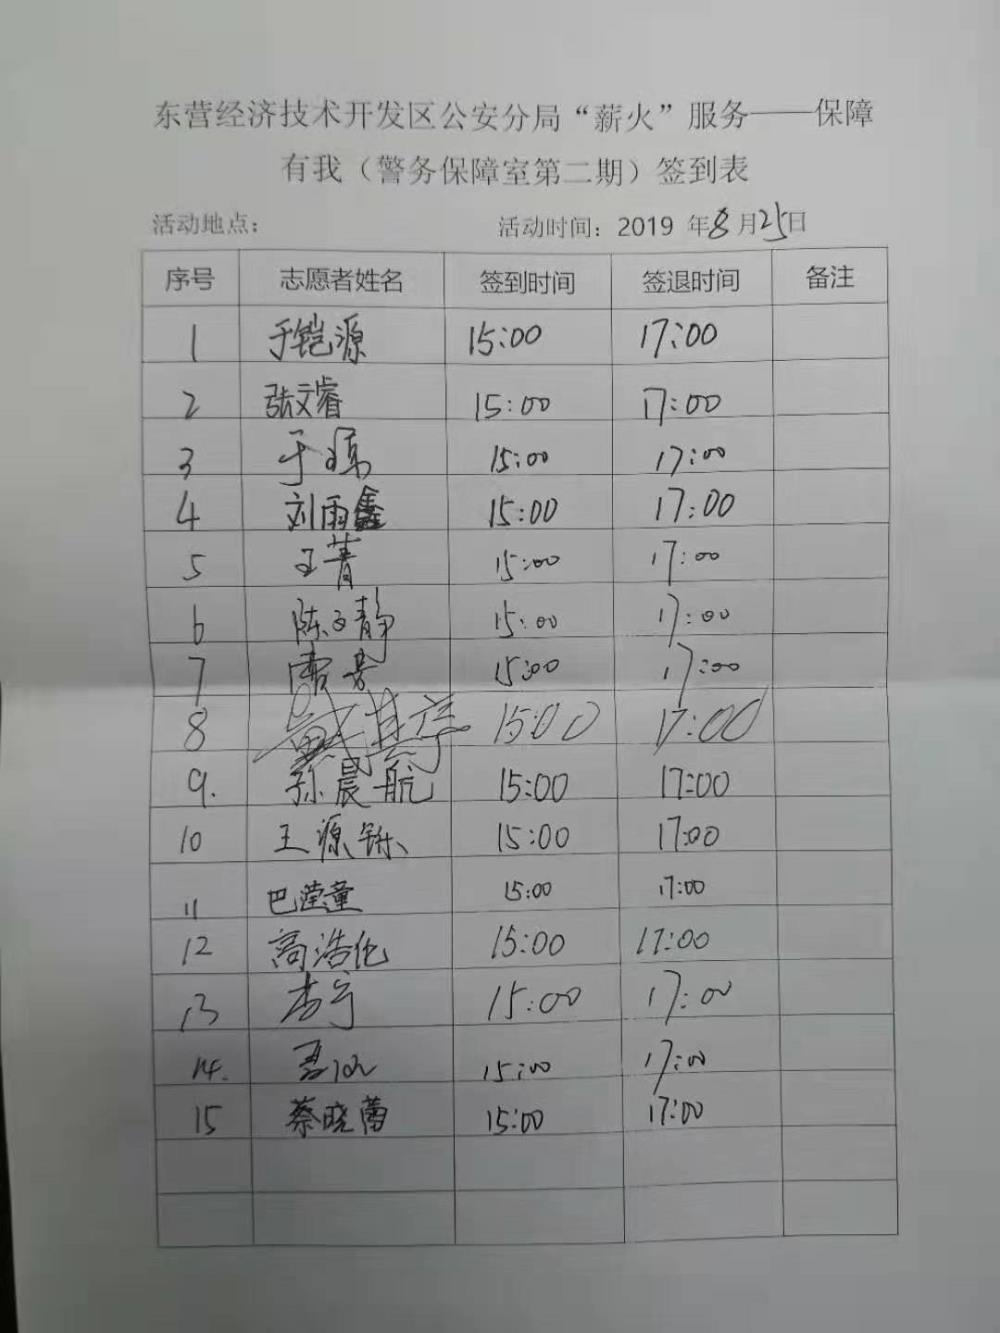 东营经济技术开发区公安分局“薪火”服务——保障
有我（警务保障室第二期）签到表
活动地点： 活动时间：2019 年8月25日
序号 志愿者姓名 签到时间 签退时间 备注
1 于铠源 15:00 17:00
2 张文睿 15:00 17:00
3 于 15:00 17:00
4 刘雨鑫 15:00 17:00
5 王菁 15:00 17:00
6 陈文静 15:00 17:00
7 15:00 17:00
8 15:00 17:00
9. 孙晨航 15:00 17:00
10 王源铄 15:00 17:00
11 巴滢童 15:00 17:00
12 高浩伦 15:00 17:00
13 李宁 15:00 17:00
14. 15:00 17:00
15 蔡晓蕾 15:00 17:00